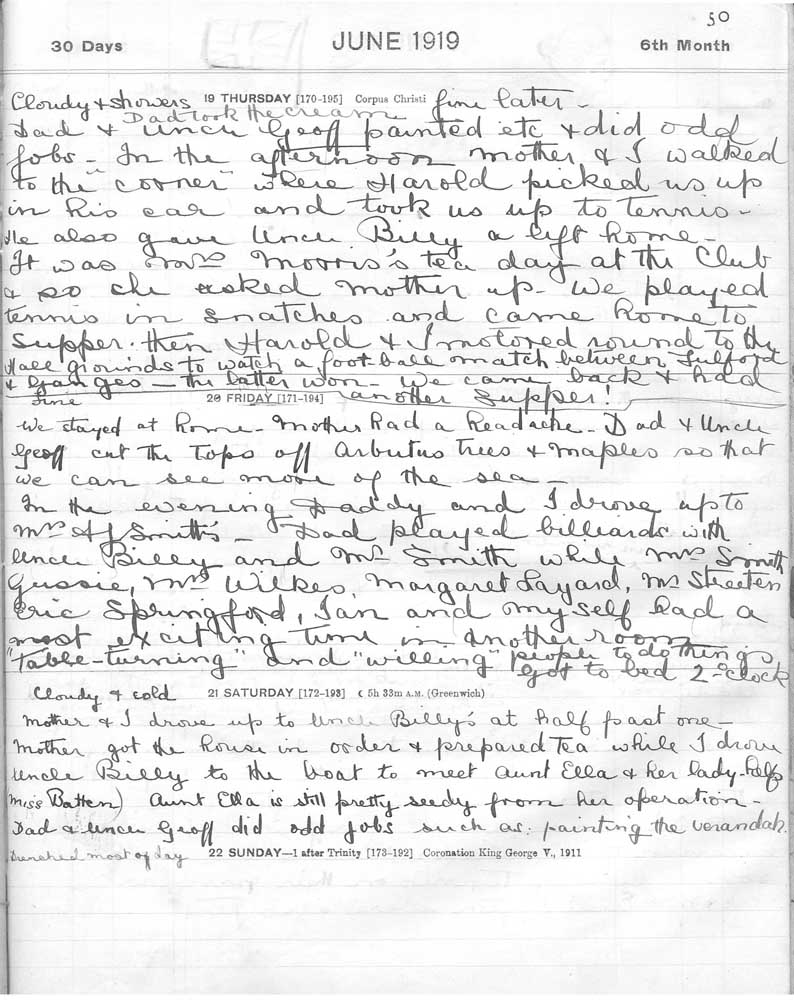 50
30 Days JUNE 1919 6th Month
Cloudy & showers 19 THURSDAY [170-195] Corpus Christi fine later -
Dad took the cream
Dad & Uncle Geoff painted etc & did odd
jobs - In the afternoon mother & I walked
to the "corner" where Harold picked us up
in his car and took us up to tennis -
He also gave Uncle Billy a lift home -
It was Mrs Morris's tea day at the Club
& so she asked mother up - We played
tennis in snatches and came home to
supper. then Harold & I motored round to the
Hall grounds to watch a foot-ball match between Fulford
& Ganges - the latter won - We came back & had
another supper!
fine 20 FRIDAY [171-194]
We stayed at home - Mother had a headache - Dad & Uncle
Geoff cut the tops off Arbutus trees & maples so that
we can see more of the sea -
In the evening Daddy and I drove up to
Mrs AJ Smith's - Dad played billiards with
Uncle Billy and Mr Smith while Mrs Smith
Gussie, Mrs Wilkes, Margaret Layard, Mr Streeten
Eric Springford, Ian and myself had a
most exciting time in another room
"Table-turning" and "willing" people to do things
Got to bed 2-o'clock
Cloudy & cold 21 SATURDAY [172-193] ☾ 5h 33m A.M. (Greenwich)
Mother & I drove up to Uncle Billy's at half past one -
Mother got the house in order & prepared tea while I drove
Uncle Billy to the boat to meet Aunt Ella & her lady-help
Miss Batten) Aunt Ella is still pretty seedy from her operation -
Dad & Uncle Geoff did odd jobs such as: painting the verandah.
Drenched most of day 22 SUNDAY—1 after Trinity [173-192] Coronation King George V., 1911